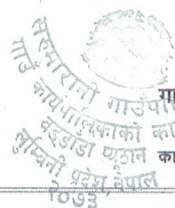 सरुमारानी गाउँपा
गाउँ कार्यपालिकाको का
वड्डाँडा प्यूठान
लुम्बिनी प्रदेश, नेपाल
२०७३
गा
का